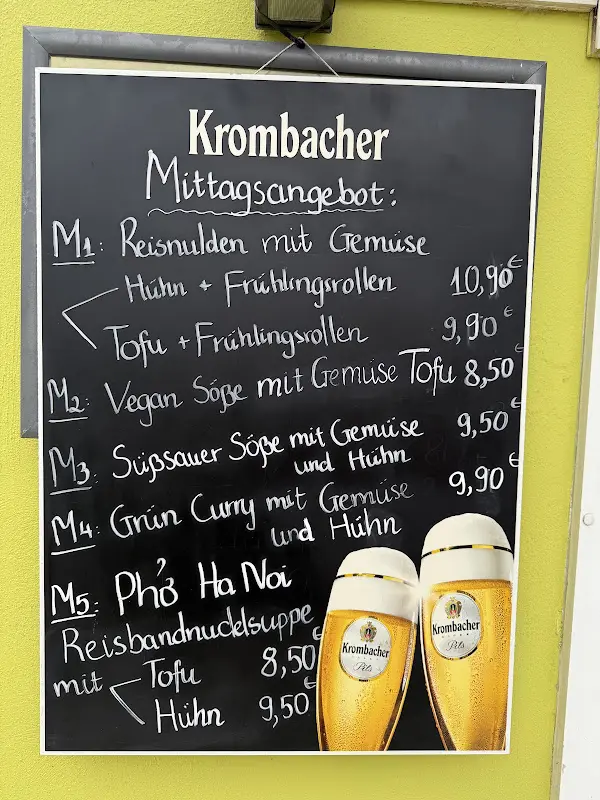 Krombacher
Mittagsangebot:
M1: Reisnulden mit Gemüse
Hühn + Frühlingsrollen 10,90€
Tofu + Frühlingsrollen 9,90€
M2: Vegan Söße mit Gemüse Tofu 8,50€
M3: Süßsauer Söße mit Gemüse 9,50€
und Hühn
M4: Grün Curry mit Gemüse 9,90€
und Hühn
M5: Phở Ha Noi
Reisbandnudelsuppe
mit Tofu 8,50€
Hühn 9,50€
Krombacher
Pils
Krombacher
Pils